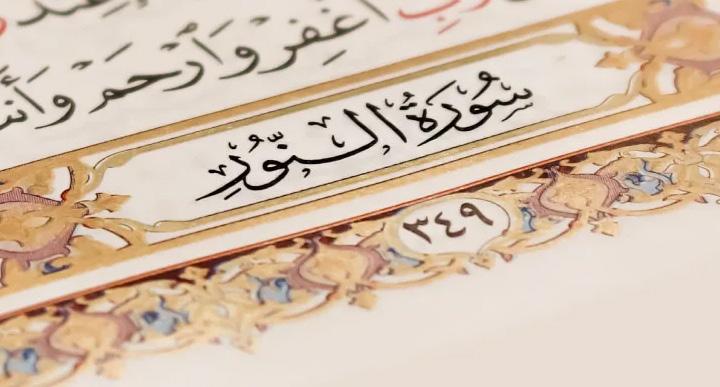 رَبِّ ٱغْفِرْ وَٱرْحَمْ وَأَنتَ
سُورَةُ النُّورِ
٣٤٩